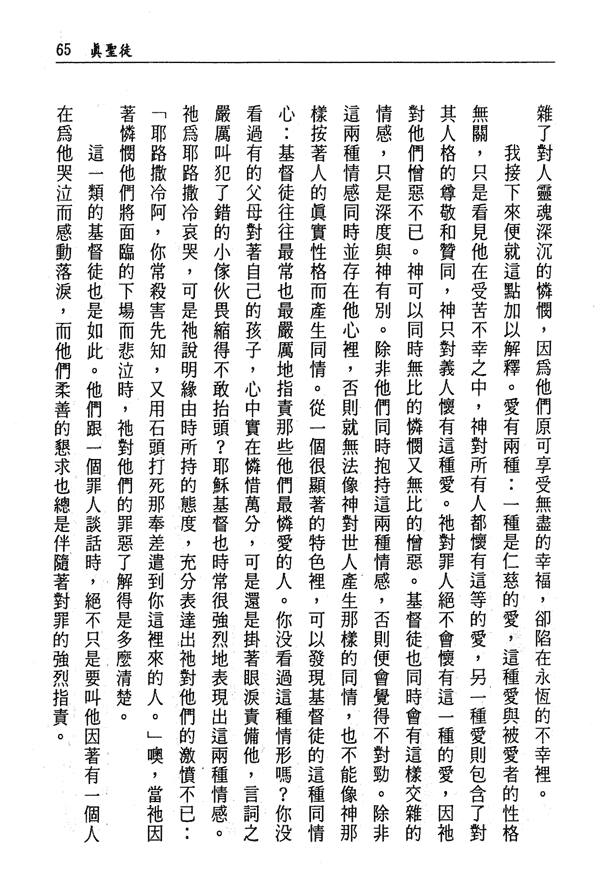 65 眞聖徒
雜了對人靈魂深沉的憐憫，因爲他們原可享受無盡的幸福，卻陷在永恆的不幸裡。
我接下來便就這點加以解釋。愛有兩種：一種是仁慈的愛，這種愛與被愛者的性格
無關，只是看見他在受苦不幸之中，神對所有人都懷有這等的愛，另一種愛則包含了對
其人格的尊敬和贊同，神只對義人懷有這種愛。祂對罪人絕不會懷有這一種的愛，因祂
對他們憎惡不已。神可以同時無比的憐憫又無比的憎惡。基督徒也同時會有這樣交雜的
情感，只是深度與神有別。除非他們同時抱持這兩種情感，否則便會覺得不對勁。除非
這兩種情感同時並存在他心裡，否則就無法像神對世人產生那樣的同情，也不能像神那
樣按著人的眞實性格而產生同情。從一個很顯著的特色裡，可以發現基督徒的這種同情
心：基督徒往往最常也最嚴厲地指責那些他們最憐愛的人。你沒看過這種情形嗎？你沒
看過有的父母對著自己的孩子，心中實在憐惜萬分，可是還是掛著眼淚責備他，言詞之
嚴厲叫犯了錯的小傢伙畏縮得不敢抬頭？耶穌基督也時常很強烈地表現出這兩種情感。
祂爲耶路撒冷哀哭，可是祂說明緣由時所持的態度，充分表達出祂對他們的激憤不已：
「耶路撒冷阿，你常殺害先知，又用石頭打死那奉差遣到你這裡來的人。」噢，當祂因
著憐憫他們將面臨的下場而悲泣時，祂對他們的罪惡了解得是多麼清楚。
這一類的基督徒也是如此。他們跟一個罪人談話時，絕不只是要叫他因著有一個人
在爲他哭泣而感動落淚，而他們柔善的懇求也總是伴隨著對罪的強烈指責。